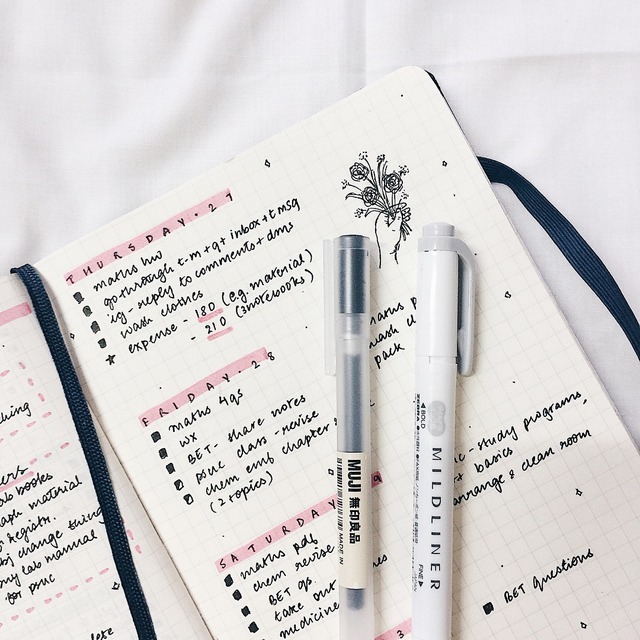 THURSDAY. 27
maths hw
go through t.m + gt inbox + t msg
ig - reply to comments + dms
wash clothes
expense - 180 (e.g. material)
- 210 (3 notebooks)
FRIDAY. 28
maths 4qs
wx
BET - share notes
psuc class - revise
chem emb chapter
(2 topics)
SATURDAY
maths pdf
chem revise
BET qs.
take out
medicine
maths p
pack
- study programs,
basics
& clean room
BET questions
3
books
material
register
change thing
lab manual
for psuc
MUJI 無印良品
MADE IN
MILDLINER
BOLD
FINE